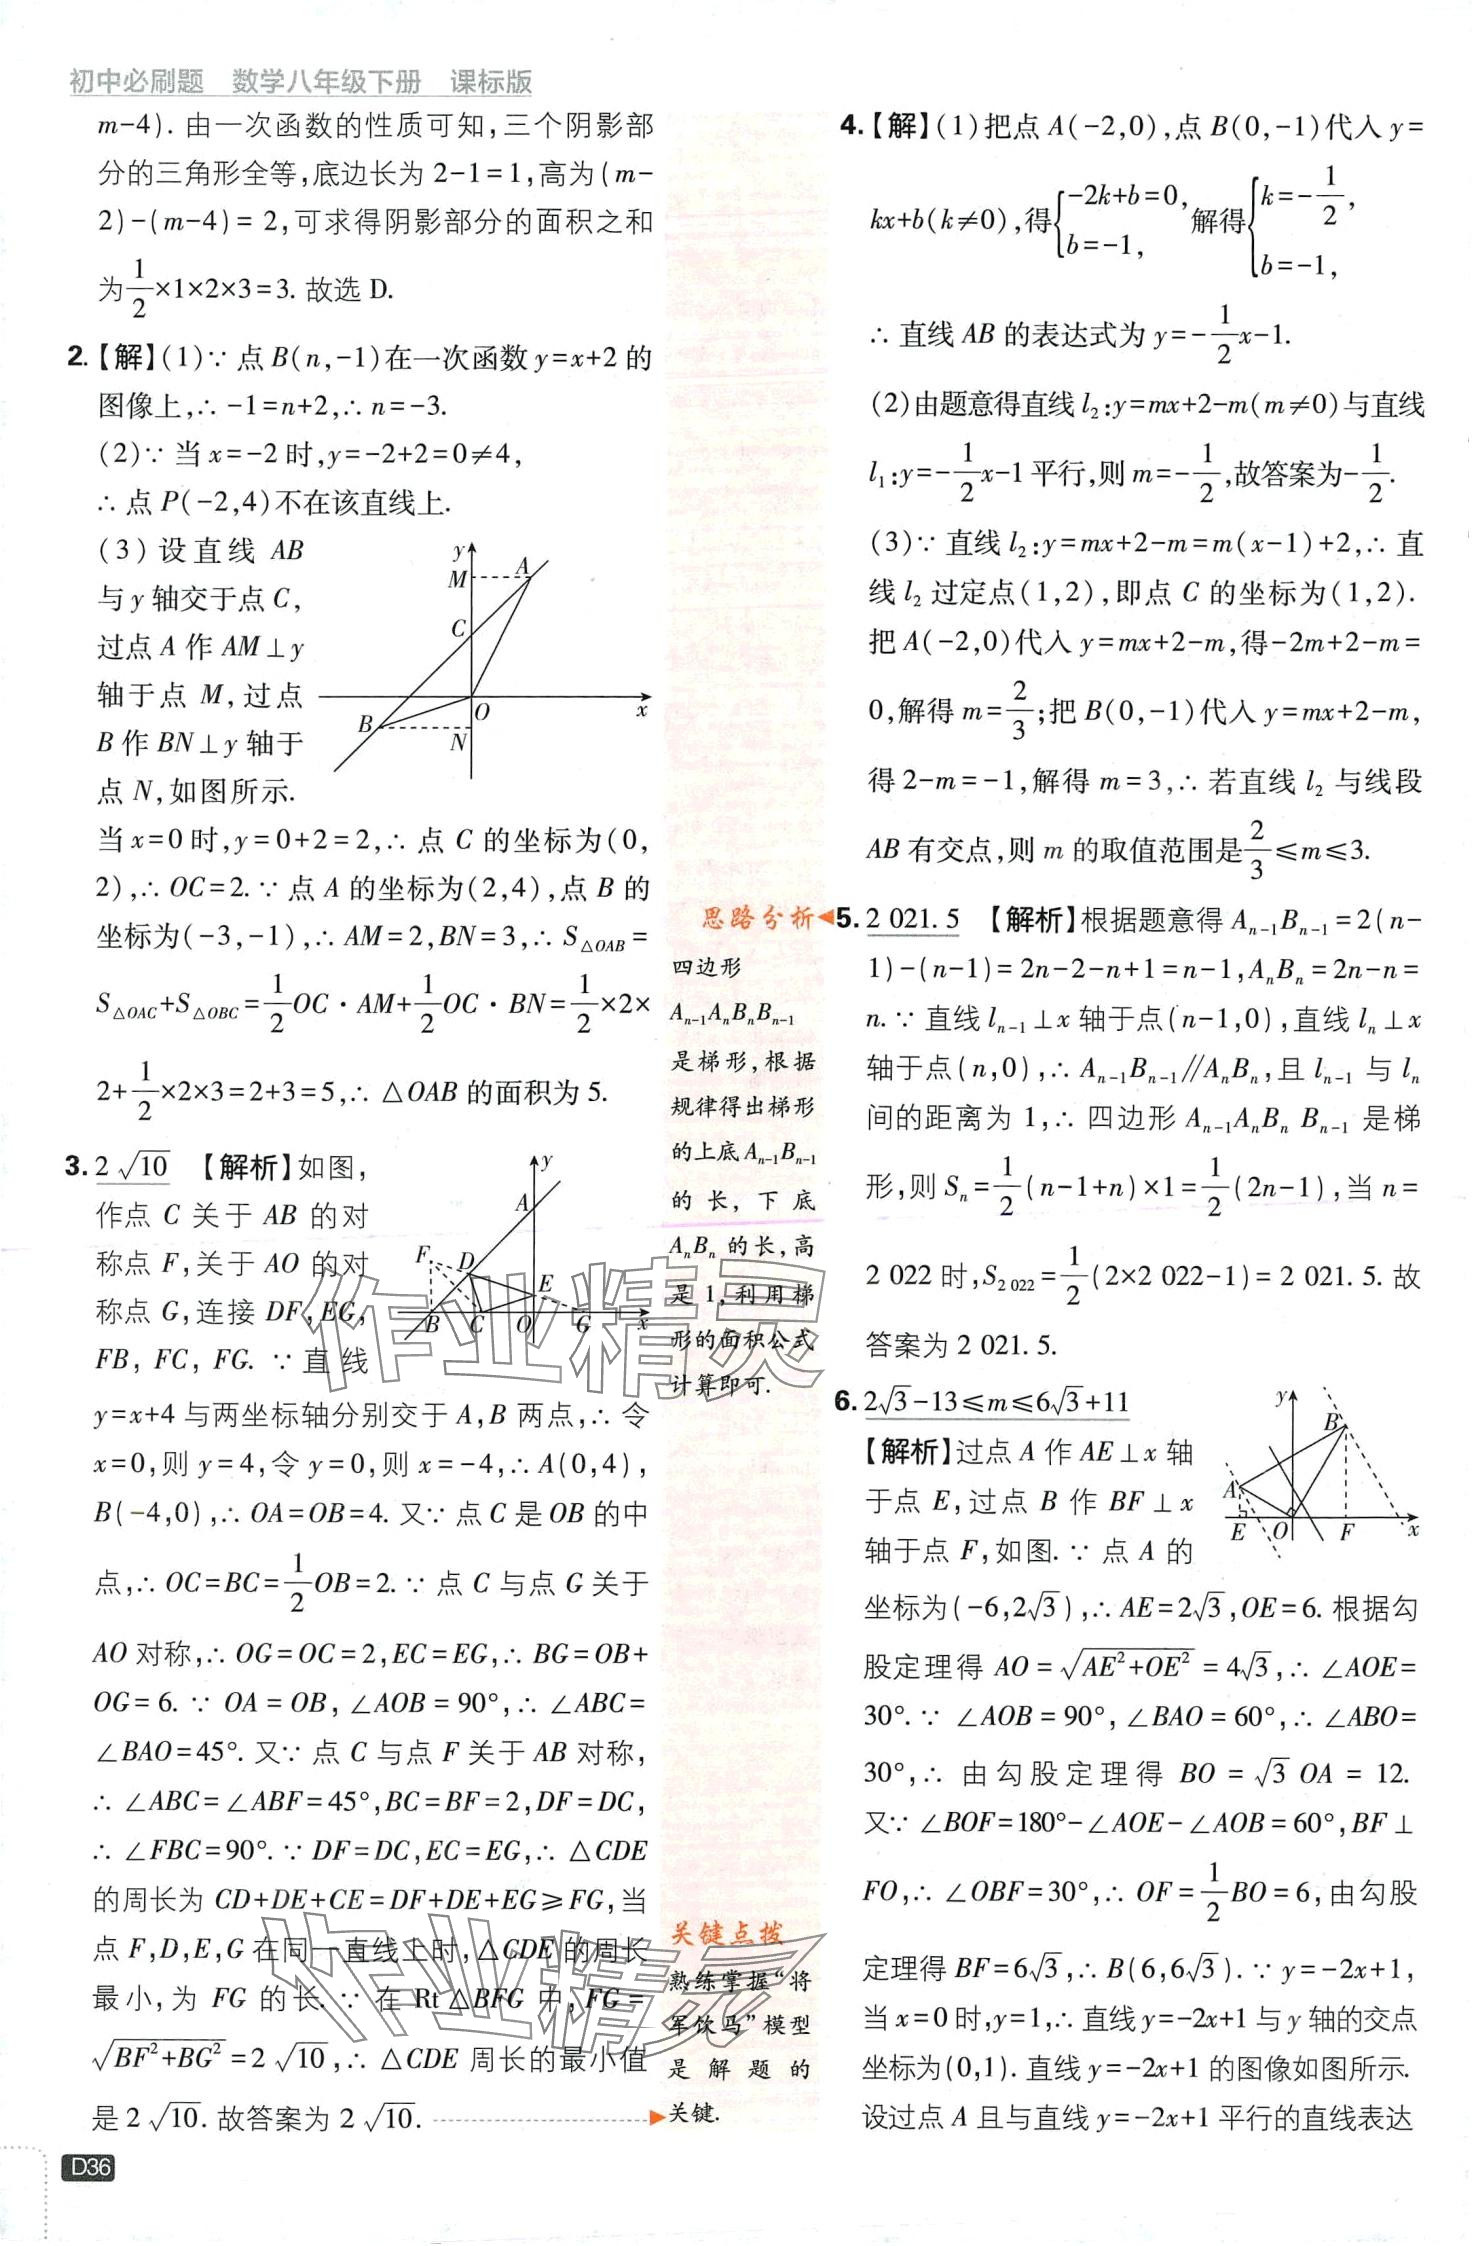 初中必刷题 数学八年级下册 课标版
m-4). 由一次函数的性质可知,三个阴影部
分的三角形全等,底边长为 2-1=1,高为(m-
2)-(m-4)=2,可求得阴影部分的面积之和
为1/2×1×2×3=3. 故选 D.
2.【解】(1)∵ 点 B(n,-1)在一次函数 y=x+2 的
图像上,∴ -1=n+2,∴ n=-3.
(2)∵ 当 x=-2 时,y=-2+2=0≠4,
∴ 点 P(-2,4)不在该直线上.
(3)设直线 AB
与 y 轴交于点 C,
过点 A 作 AM⊥y
轴于点 M,过点
B 作 BN⊥y 轴于
点 N,如图所示.
y
M
A
C
B
O
x
N
当 x=0 时,y=0+2=2,∴ 点 C 的坐标为(0,
2),∴ OC=2. ∵ 点 A 的坐标为(2,4),点 B 的
坐标为(-3,-1),∴ AM=2,BN=3,∴ S△OAB=
S△OAC+S△OBC=1/2OC·AM+1/2OC·BN=1/2×2×
2+1/2×2×3=2+3=5,∴ △OAB 的面积为 5.
3. 2√10 【解析】如图,
作点 C 关于 AB 的对
称点 F,关于 AO 的对
称点 G,连接 DF,EG,
FB,FC,FG. ∵ 直线
y
A
F
D
E
B
C
O
G
x
y=x+4 与两坐标轴分别交于 A,B 两点,∴ 令
x=0,则 y=4,令 y=0,则 x=-4,∴ A(0,4),
B(-4,0),∴ OA=OB=4. 又∵ 点 C 是 OB 的中
点,∴ OC=BC=1/2OB=2. ∵ 点 C 与点 G 关于
AO 对称,∴ OG=OC=2,EC=EG,∴ BG=OB+
OG=6. ∵ OA=OB,∠AOB=90°,∴ ∠ABC=
∠BAO=45°. 又∵ 点 C 与点 F 关于 AB 对称,
∴ ∠ABC=∠ABF=45°,BC=BF=2,DF=DC,
∴ ∠FBC=90°. ∵ DF=DC,EC=EG,∴ △CDE
的周长为 CD+DE+CE=DF+DE+EG≥FG,当
点 F,D,E,G 在同一直线上时,△CDE 的周长
最小,为 FG 的长. ∵ 在 Rt△BFG 中,FG=
√(BF²+BG²)=2√10,∴ △CDE 周长的最小值
是 2√10. 故答案为 2√10.
D36
思路分析
四边形
Aₙ₋₁AₙBₙBₙ₋₁
是梯形,根据
规律得出梯形
的上底Aₙ₋₁Bₙ₋₁
的长,下底
AₙBₙ 的长,高
是 1,利用梯
形的面积公式
计算即可.
关键点拨
熟练掌握“将
军饮马”模型
是解题的
关键.
4.【解】(1)把点 A(-2,0),点 B(0,-1)代入 y=
kx+b(k≠0),得{-2k+b=0, b=-1, 解得{k=-1/2, b=-1,
∴ 直线 AB 的表达式为 y=-1/2x-1.
(2)由题意得直线 l₂:y=mx+2-m(m≠0)与直线
l₁:y=-1/2x-1 平行,则 m=-1/2,故答案为-1/2.
(3)∵ 直线 l₂:y=mx+2-m=m(x-1)+2,∴ 直
线 l₂ 过定点(1,2),即点 C 的坐标为(1,2).
把 A(-2,0)代入 y=mx+2-m,得-2m+2-m=
0,解得 m=2/3;把 B(0,-1)代入 y=mx+2-m,
得 2-m=-1,解得 m=3,∴ 若直线 l₂ 与线段
AB 有交点,则 m 的取值范围是2/3≤m≤3.
5. 2 021.5 【解析】根据题意得 Aₙ₋₁Bₙ₋₁=2(n-
1)-(n-1)=2n-2-n+1=n-1,AₙBₙ=2n-n=
n. ∵ 直线 lₙ₋₁⊥x 轴于点(n-1,0),直线 lₙ⊥x
轴于点(n,0),∴ Aₙ₋₁Bₙ₋₁∥AₙBₙ,且 lₙ₋₁ 与 lₙ
间的距离为 1,∴ 四边形 Aₙ₋₁AₙBₙBₙ₋₁ 是梯
形,则 Sₙ=1/2(n-1+n)×1=1/2(2n-1),当 n=
2 022 时,S₂ ₀₂₂=1/2(2×2 022-1)=2 021.5. 故
答案为 2 021.5.
6. 2√3-13≤m≤6√3+11
【解析】过点 A 作 AE⊥x 轴
于点 E,过点 B 作 BF⊥x
轴于点 F,如图. ∵ 点 A 的
y
B
A
E
O
F
x
坐标为(-6,2√3),∴ AE=2√3,OE=6. 根据勾
股定理得 AO=√(AE²+OE²)=4√3,∴ ∠AOE=
30°. ∵ ∠AOB=90°,∠BAO=60°,∴ ∠ABO=
30°,∴ 由勾股定理得 BO=√3OA=12.
又∵ ∠BOF=180°-∠AOE-∠AOB=60°,BF⊥
FO,∴ ∠OBF=30°,∴ OF=1/2BO=6,由勾股
定理得 BF=6√3,∴ B(6,6√3). ∵ y=-2x+1,
当 x=0 时,y=1,∴ 直线 y=-2x+1 与 y 轴的交点
坐标为(0,1). 直线 y=-2x+1 的图像如图所示.
设过点 A 且与直线 y=-2x+1 平行的直线表达
作业精灵
作业精灵